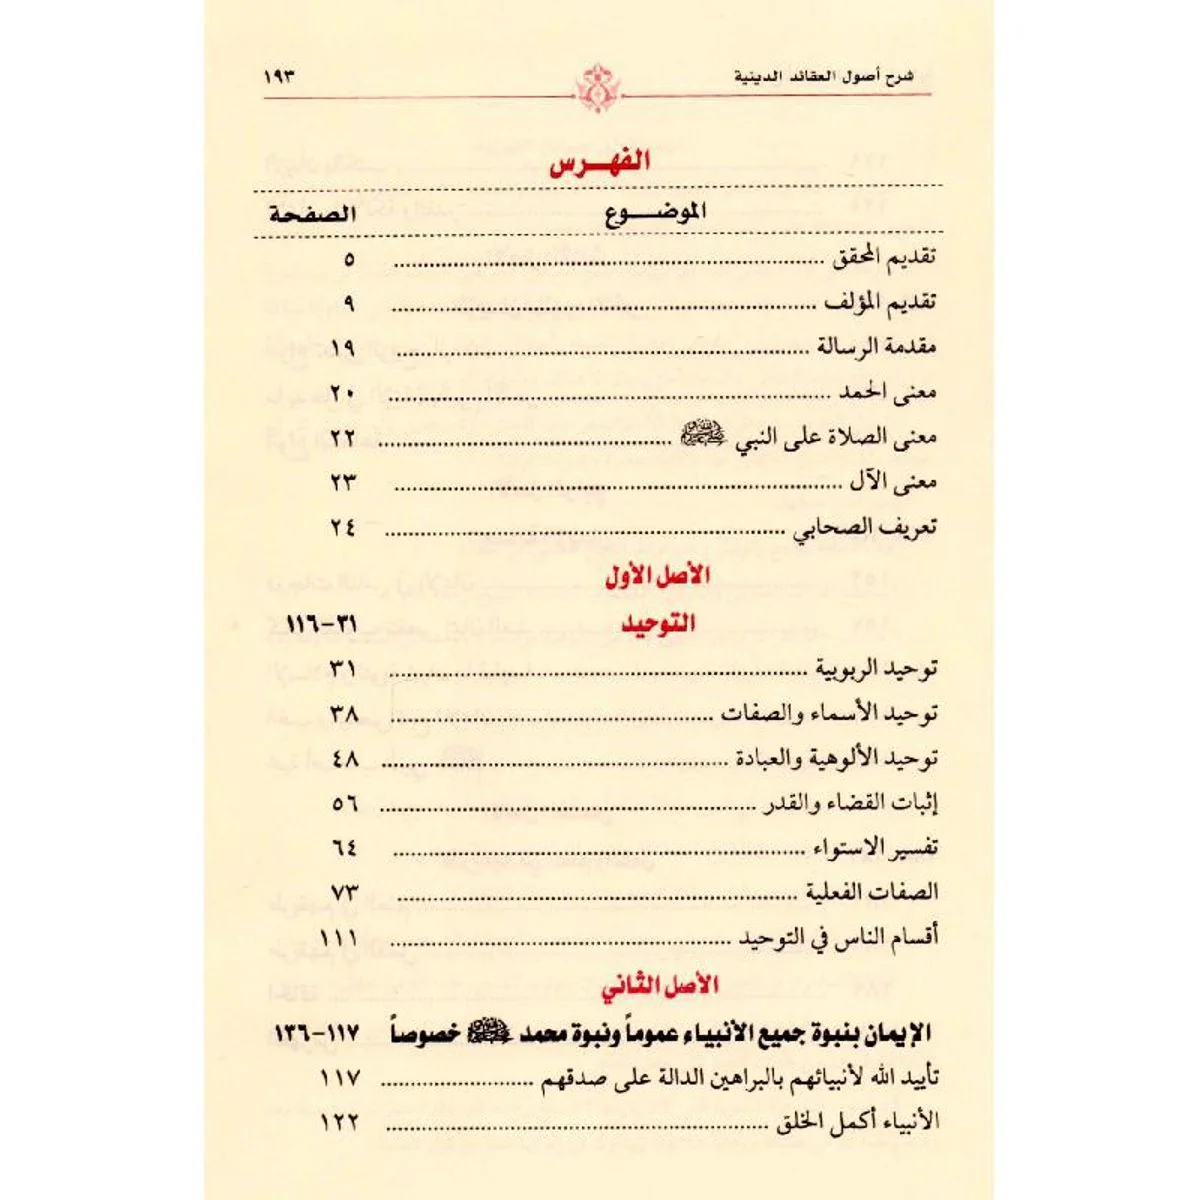 شرح أصول العقائد الدينية ١٩٣
الفهـــرس
الموضـــوع الصفحة
تقديم المحقق ..... ٥
تقديم المؤلف ..... ٩
مقدمة الرسالة ..... ١٩
معنى الحمد ..... ٢٠
معنى الصلاة على النبي ﷺ ..... ٢٢
معنى الآل ..... ٢٣
تعريف الصحابي ..... ٢٤
الأصل الأول
التوحيد ٣١-١١٦
توحيد الربوبية ..... ٣١
توحيد الأسماء والصفات ..... ٣٨
توحيد الألوهية والعبادة ..... ٤٨
إثبات القضاء والقدر ..... ٥٦
تفسير الاستواء ..... ٦٤
الصفات الفعلية ..... ٧٣
أقسام الناس في التوحيد ..... ١١١
الأصل الثاني
الإيمان بنبوة جميع الأنبياء عموماً ونبوة محمد ﷺ خصوصاً ١١٧-١٣٦
تأييد الله لأنبيائهم بالبراهين الدالة على صدقهم ..... ١١٧
الأنبياء أكمل الخلق ..... ١٢٢